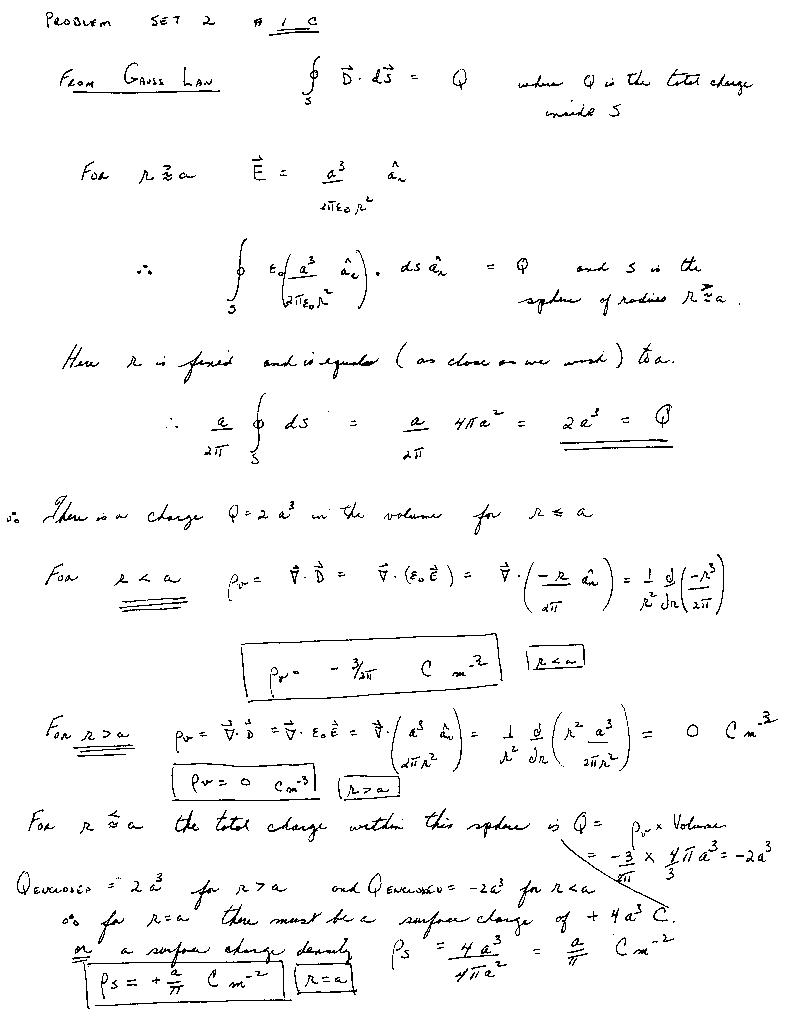 PROBLEM SET 2 # 1 C
FROM GAUSS LAW ∮_S D⃗ · dS⃗ = Q where Q is the total charge
inside S
FOR r ≳ a E⃗ = a³/(2πε₀r²) â_r
∴ ∮_S ε₀(a³/(2πε₀r²) â_r) · ds â_r = Q and S is the
sphere of radius r ≳ a.
Here r is fixed and is equal (as close as we wish) to a.
∴ a/2π ∮_S ds = a/2π 4πa² = 2a³ = Q
∴ There is a charge Q = 2a³ in the volume for r ≤ a
FOR r < a ρ_v = ∇⃗ · D⃗ = ∇⃗ · (ε₀E⃗) = ∇⃗ · (-r/2π â_r) = 1/r² d/dr (-r³/2π)
ρ_v = - 3/2π C m⁻³ r < a
FOR r > a ρ_v = ∇⃗ · D⃗ = ∇⃗ · ε₀E⃗ = ∇⃗ · (a³ â_r/(2πr²)) = 1/r² d/dr (r² a³/(2πr²)) = 0 C m⁻³
ρ_v = 0 C m⁻³ r > a
FOR r ≲ a the total charge within this sphere is Q = ρ_v × Volume
= -3/2π × 4/3 πa³ = -2a³
Q ENCLOSED = 2a³ for r > a and Q ENCLOSED = -2a³ for r < a
∴ for r = a there must be a surface charge of + 4a³ C.
or a surface charge density ρ_s = 4a³/4πa² = a/π C m⁻²
ρ_s = + a/π C m⁻² r = a